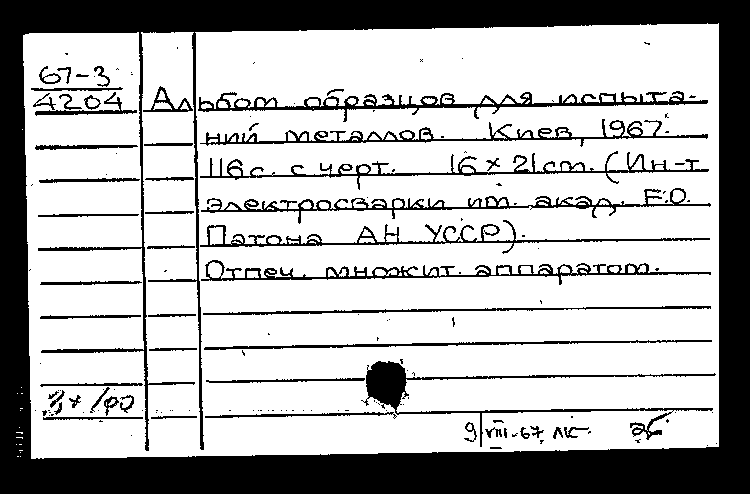 67-3
4204
Альбом образцов для испыта-
ний металлов. Киев, 1967.
116 с. с черт. 16 × 21 cm. (Ин-т
электросварки им. акад. Е.О.
Патона АН УССР).
Отпеч. множит. аппаратом.
9/VIII-67 ЛК